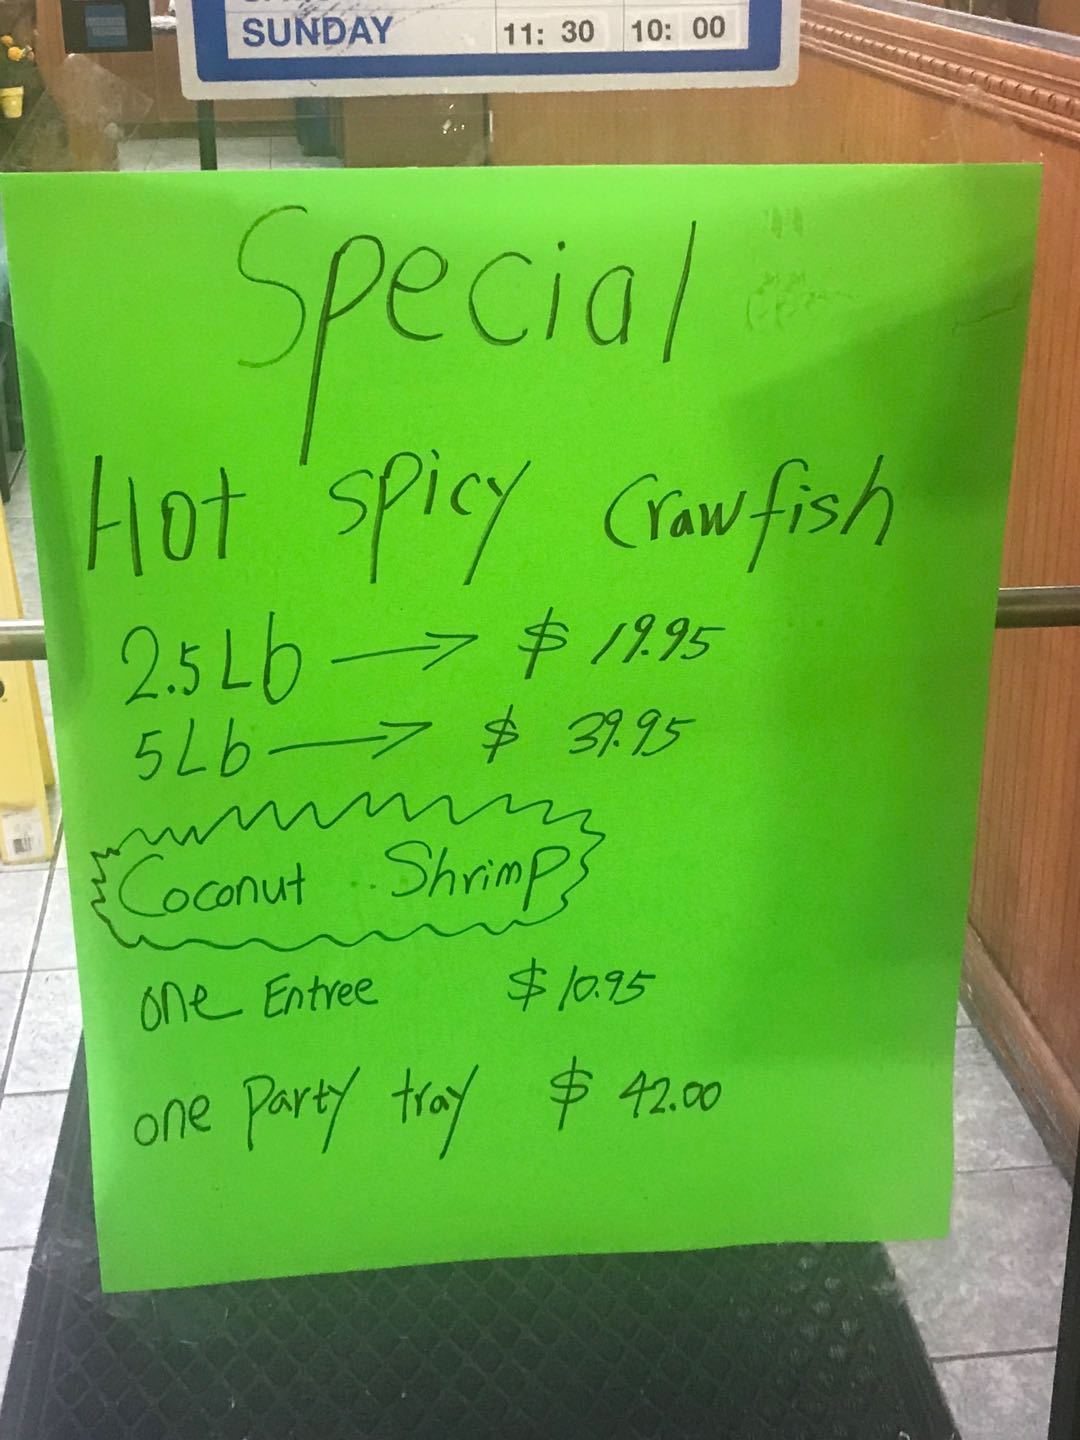 SUNDAY 11: 30 10: 00
Special
Hot spicy Crawfish
2.5Lb → $ 19.95
5Lb → $ 39.95
Coconut Shrimp
one Entree $ 10.95
one Party tray $ 42.00